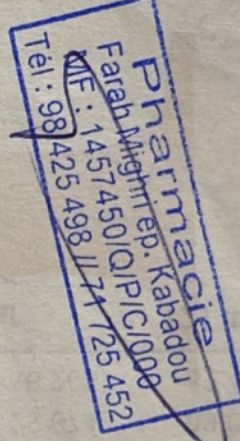 Pharmacie
Farah Mighri ep. Kabadou
MF : 1457450/Q/P/C/000
Tél : 98 425 498 // 71 725 452